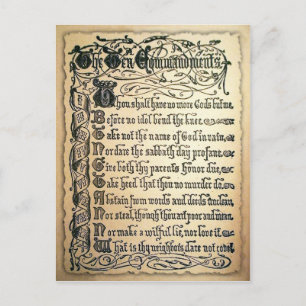 The Ten Commandments.
Thou shalt have no more Gods but me,
Before no idol bend the knee.
Take not the name of God in vain,
Nor dare the sabbath day profane.
Give both thy parents honor due,
Take heed that thou no murder do.
Abstain from words and deeds unclean,
Nor steal, though thou art poor and mean.
Nor make a wilful lie, nor love it.
What is thy neighbor's dare not covet.